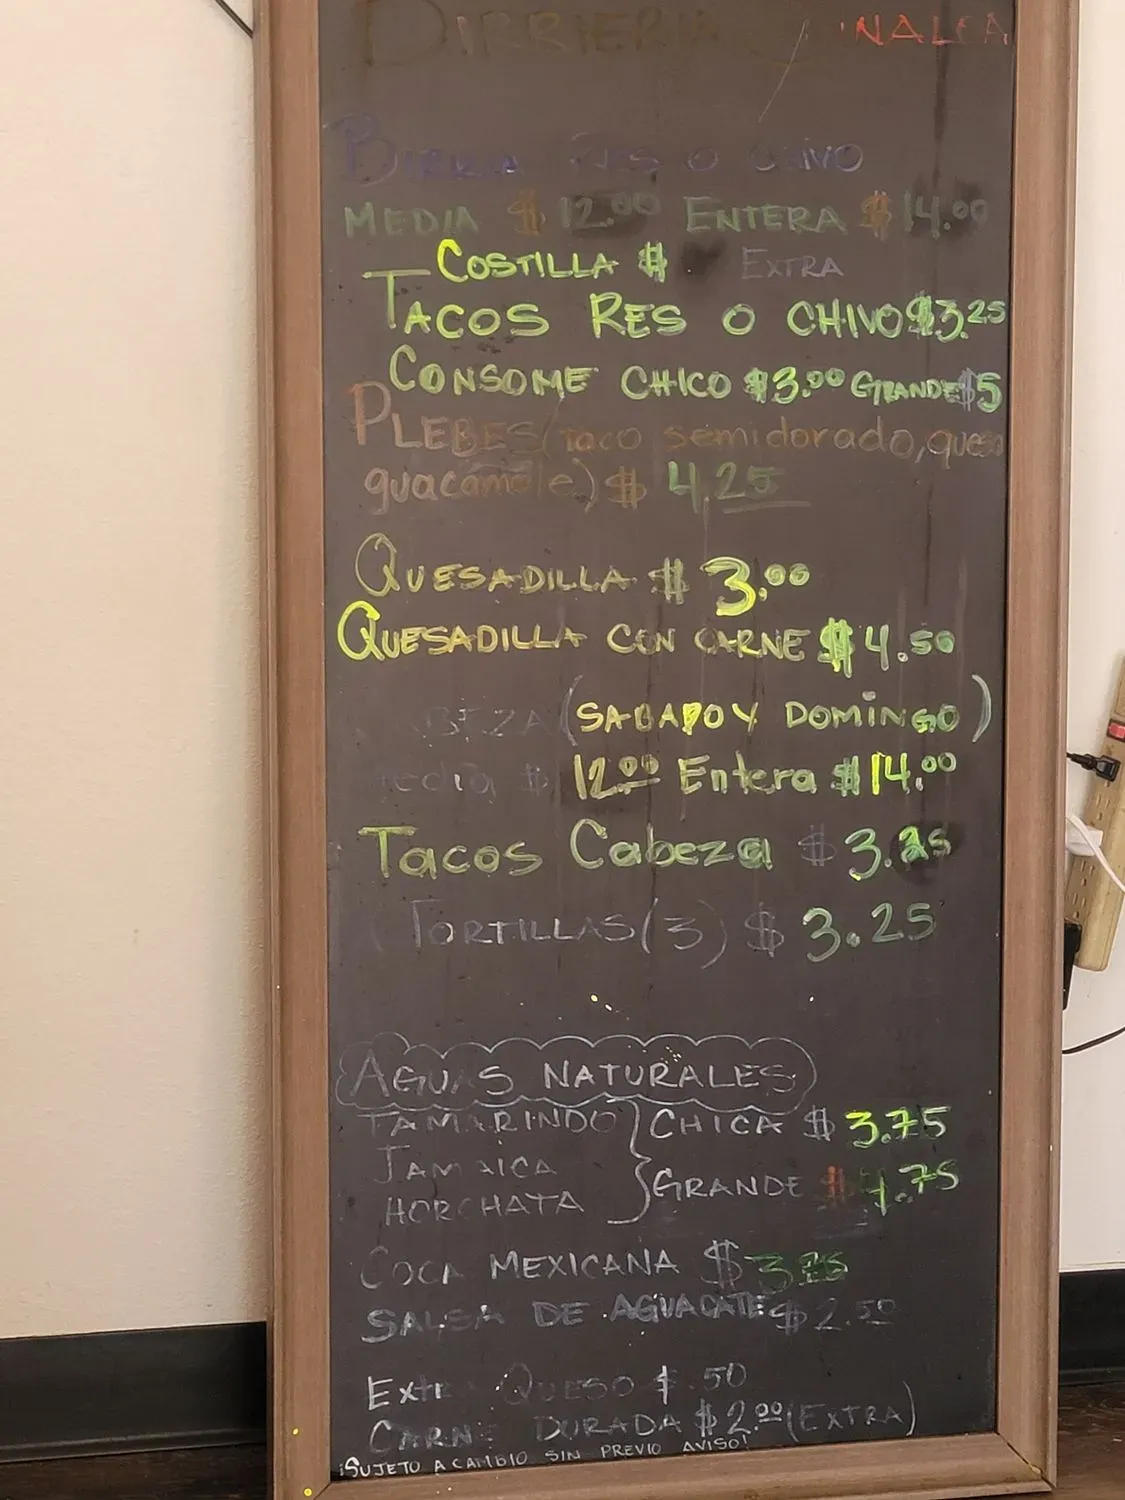 BIRRIERIA SINALOA
BIRRIA RES O CHIVO
MEDIA $12.00 ENTERA $14.00
COSTILLA $ EXTRA
TACOS RES O CHIVO $3.25
CONSOME CHICO $3.00 GRANDE $5
PLEBES (taco semidorado, queso
guacamole) $4.25
QUESADILLA $3.00
QUESADILLA CON CARNE $4.50
BEZA (SABADO Y DOMINGO)
media $12.00 Entera $14.00
Tacos Cabeza $3.25
TORTILLAS (3) $3.25
AGUAS NATURALES
TAMARINDO } CHICA $3.75
JAMAICA
HORCHATA } GRANDE $4.75
COCA MEXICANA $
SALSA DE AGUACATE $2.50
EXTRA QUESO $.50
CARNE DORADA $2.00 (EXTRA)
¡SUJETO A CAMBIO SIN PREVIO AVISO!